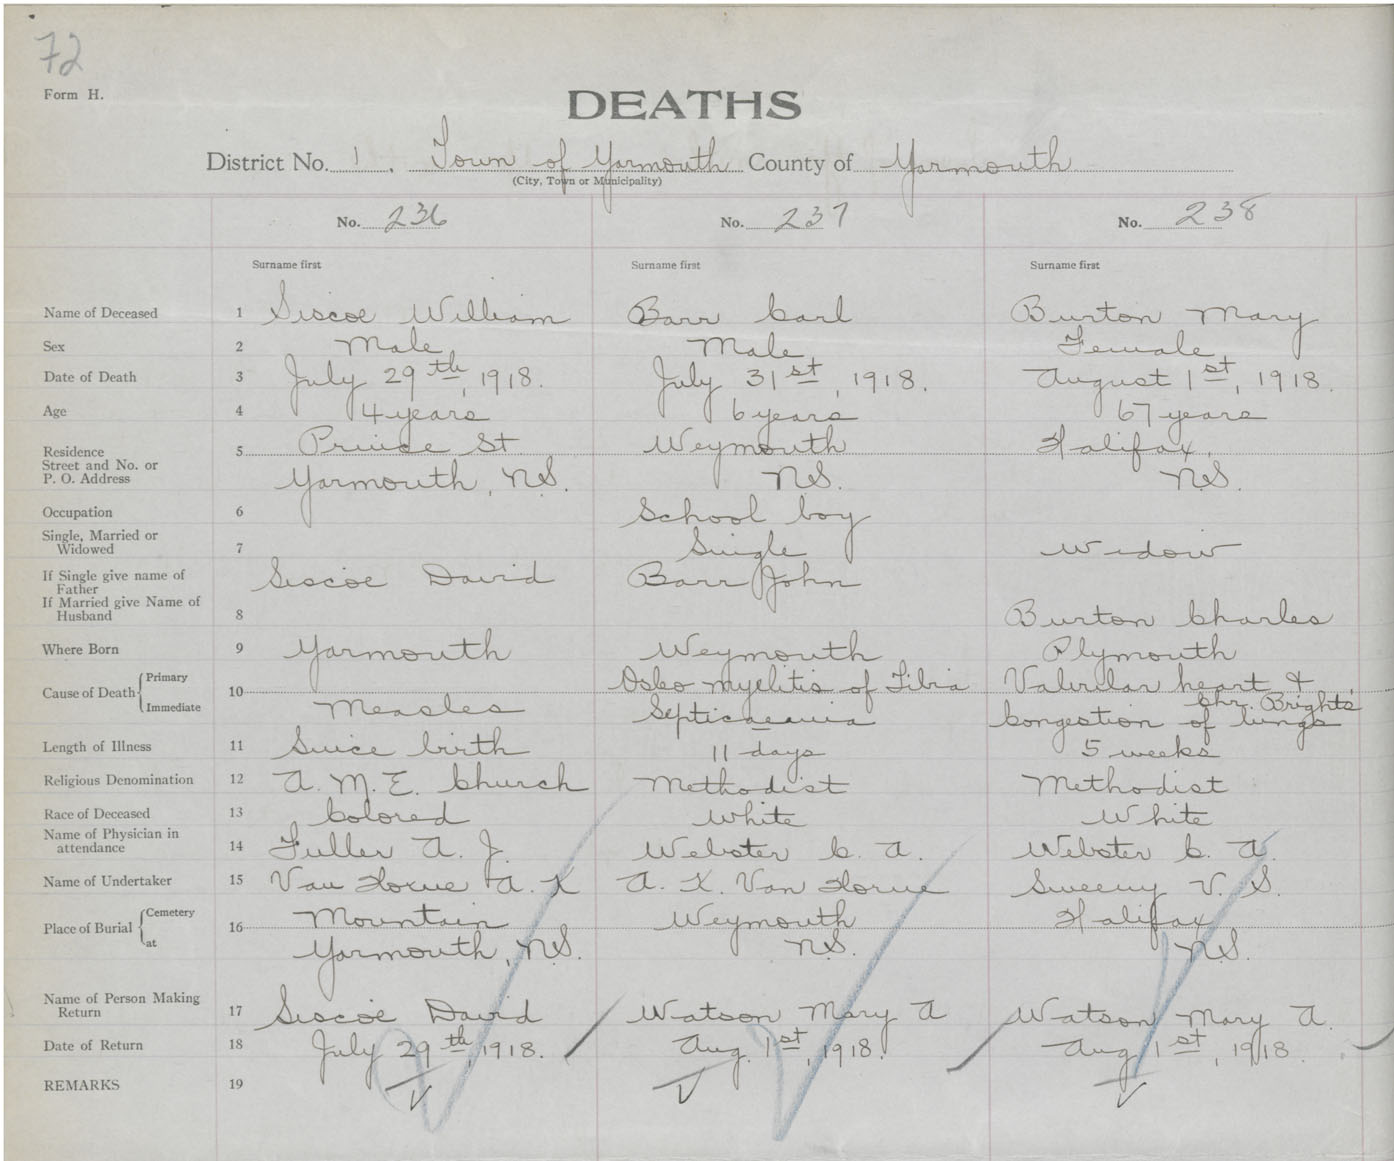 72
Form H.
DEATHS
District No. 1. Town of Yarmouth County of Yarmouth
(City, Town or Municipality)
No. 236 No. 237 No. 238
Surname first Surname first Surname first
Name of Deceased 1 Siscoe William Barr Carl Burton Mary
Sex 2 Male Male Female
Date of Death 3 July 29th, 1918. July 31st, 1918. August 1st, 1918.
Age 4 4 years 6 years 67 years
Residence 5 Prince St Weymouth Halifax,
Street and No. or
P. O. Address Yarmouth, N.S. N.S. N.S.
Occupation 6 School boy
Single, Married or
Widowed 7 Single Widow
If Single give name of Siscoe David Barr John
Father
If Married give Name of
Husband 8 Burton Charles
Where Born 9 Yarmouth Weymouth Plymouth
Cause of Death Primary 10 Osteo myelitis of Tibia Valvular heart & Chr. Brights
Immediate Measles Septicaemia Congestion of lungs
Length of Illness 11 Since birth 11 days 5 weeks
Religious Denomination 12 A. M. E. Church Methodist Methodist
Race of Deceased 13 Colored White White
Name of Physician in
attendance 14 Fuller A. J. Webster C. A. Webster C. A.
Name of Undertaker 15 Van Horne A. K A. K. Van Horne Sweeny V. S.
Place of Burial Cemetery 16 Mountain Weymouth Halifax
at Yarmouth, N.S. N.S. N.S.
Name of Person Making
Return 17 Siscoe David Watson Mary A Watson Mary A.
Date of Return 18 July 29th, 1918. Aug. 1st, 1918. Aug 1st, 1918.
REMARKS 19